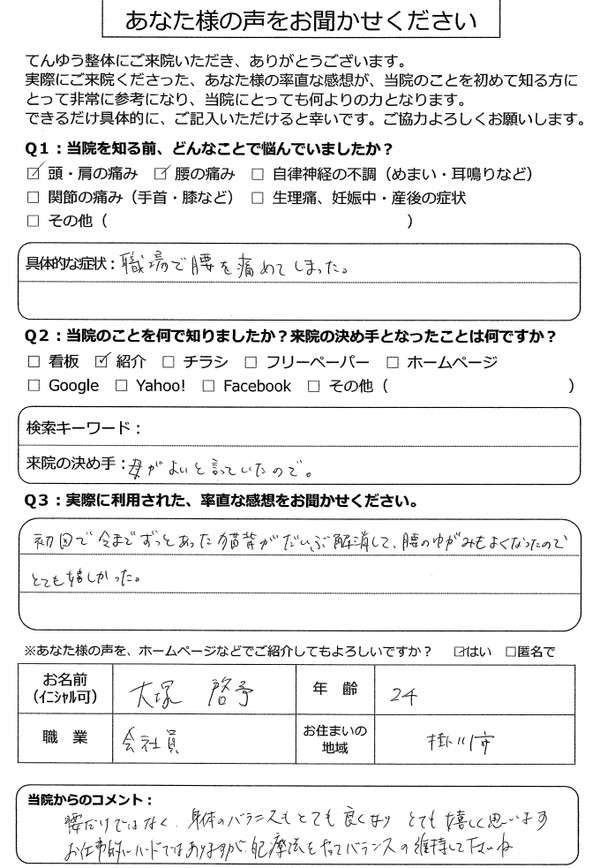 あなた様の声をお聞かせください
てんゆう整体にご来院いただき、ありがとうございます。
実際にご来院くださった、あなた様の率直な感想が、当院のことを初めて知る方に
とって非常に参考になり、当院にとっても何よりの力となります。
できるだけ具体的に、ご記入いただけると幸いです。ご協力よろしくお願いします。
Q1：当院を知る前、どんなことで悩んでいましたか？
☑ 頭・肩の痛み ☑ 腰の痛み □ 自律神経の不調（めまい・耳鳴りなど）
□ 関節の痛み（手首・膝など） □ 生理痛、妊娠中・産後の症状
□ その他（ ）
具体的な症状：職場で腰を痛めてしまった。
Q2：当院のことを何で知りましたか？来院の決め手となったことは何ですか？
□ 看板 ☑ 紹介 □ チラシ □ フリーペーパー □ ホームページ
□ Google □ Yahoo! □ Facebook □ その他（ ）
検索キーワード：
来院の決め手：母がよいと言っていたので。
Q3：実際に利用された、率直な感想をお聞かせください。
初回で今までずっとあった猫背がだいぶ解消して、腰のゆがみもよくなったので
とても嬉しかった。
※あなた様の声を、ホームページなどでご紹介してもよろしいですか？ ☑はい □匿名で
お名前
（イニシャル可） 大塚 啓予 年 齢 24
職 業 会社員 お住まいの
地域 掛川市
当院からのコメント：
腰だけではなく、身体のバランスもとても良くなり とても嬉しく思います
お仕事的にハードではありますが、バランスの維持して